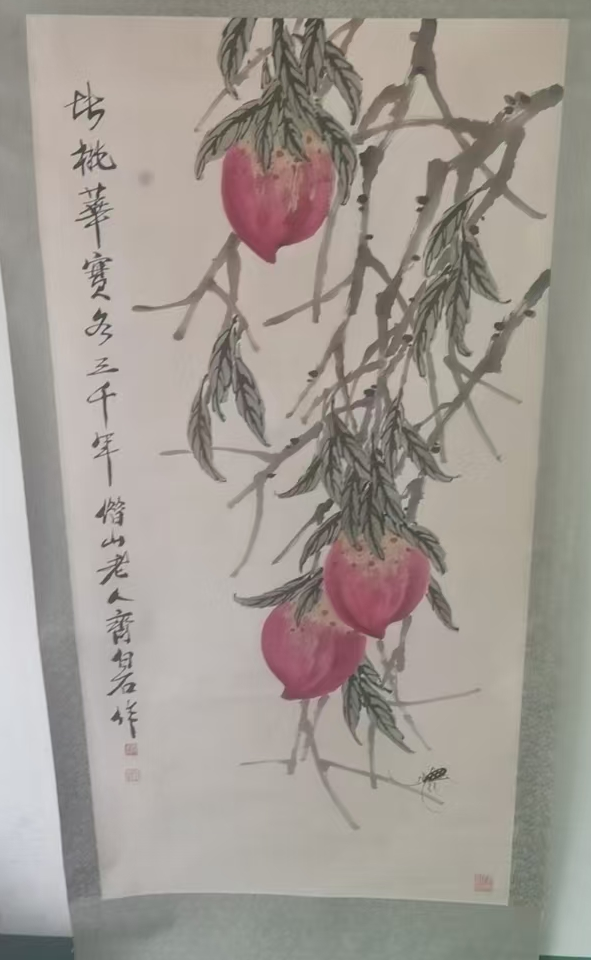 此桃華實各三千年借山老人齊白石作